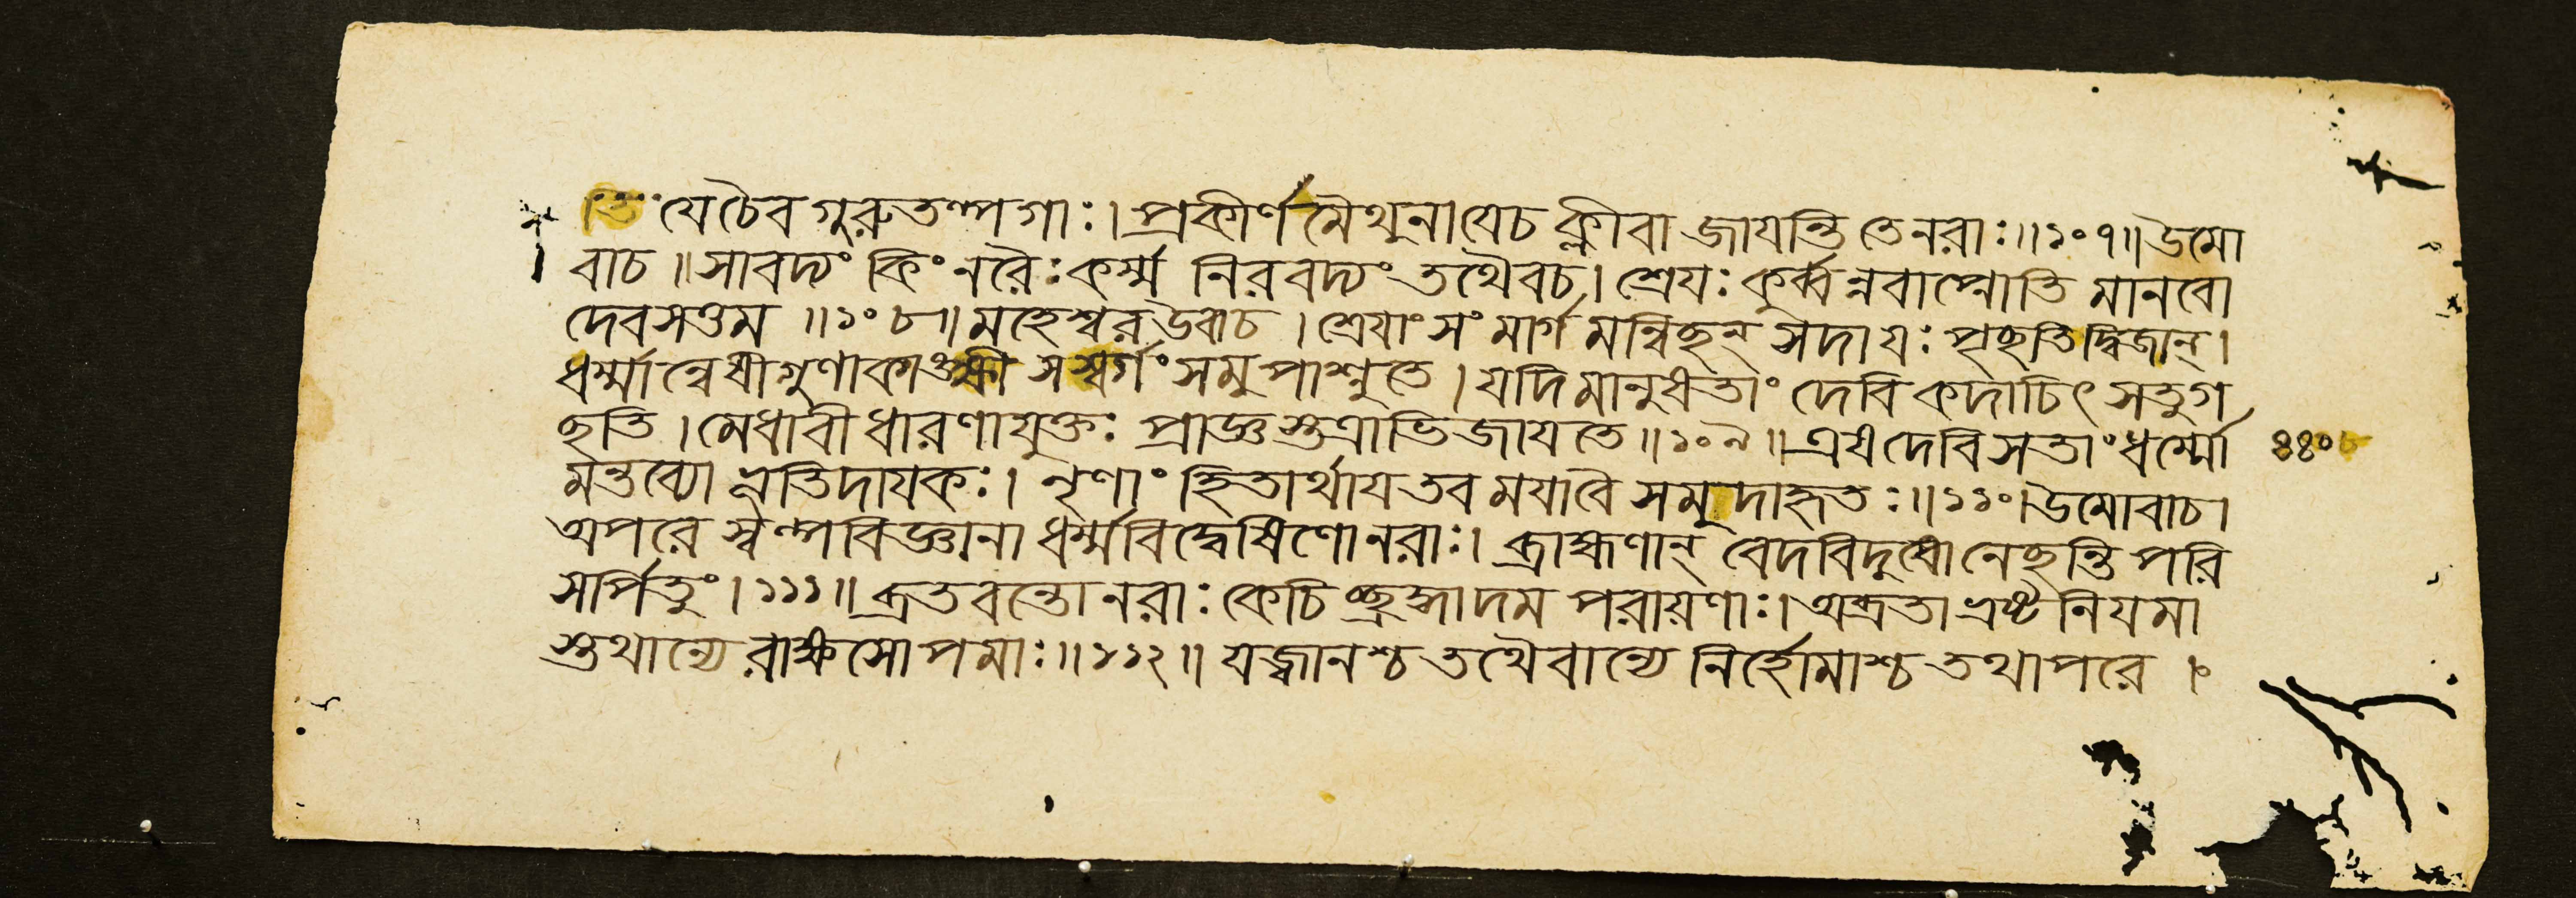 তি যেচৈব গুরুতল্পগাঃ। প্রকীর্ণ মৈথুনাযেচ ক্লীবা জাযন্তি তেনরাঃ॥১০৭॥উমো
বাচ॥সাবদ্যং কিংনরৈঃকর্ম্ম নিরবদ্যং তথৈবচ। শ্রেযঃ কুর্ব্বন্নবাপ্নোতি মানবো
দেবসত্তম॥১০৮॥মহেশ্বরউবাচ। শ্রেযাংসং মার্গমন্বিছন্ সদাযঃ পৃছতিদ্বিজান্।
ধর্ম্মান্বেষীগুণাকাঙক্ষী সস্বর্গংসমুপাশ্নুতে। যদিমানুষতাং দেবিকদাচিৎ সতুগ
ছতি। মেধাবী ধারণাযুক্তঃ প্রাজ্ঞস্তত্রাভিজাযতে॥১০৯॥এষদেবিসতাংধর্ম্মো
৪৪০
মন্তব্যো ভূতিদাযকঃ। নৃণাং হিতার্থাযতব মযাবৈ সমুদাহৃতঃ॥১১০।উমোবাচ।
অপরে স্বল্পবিজ্ঞানা ধর্ম্মবিদ্বেষিণোনরাঃ। ব্রাহ্মণান্ বেদবিদুষোনেছন্তি পরি
সর্পিতুং।১১১॥ব্রতবন্তোনরাঃ কেচিচ্ছ্রদ্ধাদম পরায়ণাঃ। অব্রতা ভ্রষ্টনিযমা
স্তথান্যে রাক্ষসোপমাঃ॥১১২॥ যজ্বানশ্চ তথৈবান্যে নির্হোমাশ্চ তথাপরে।